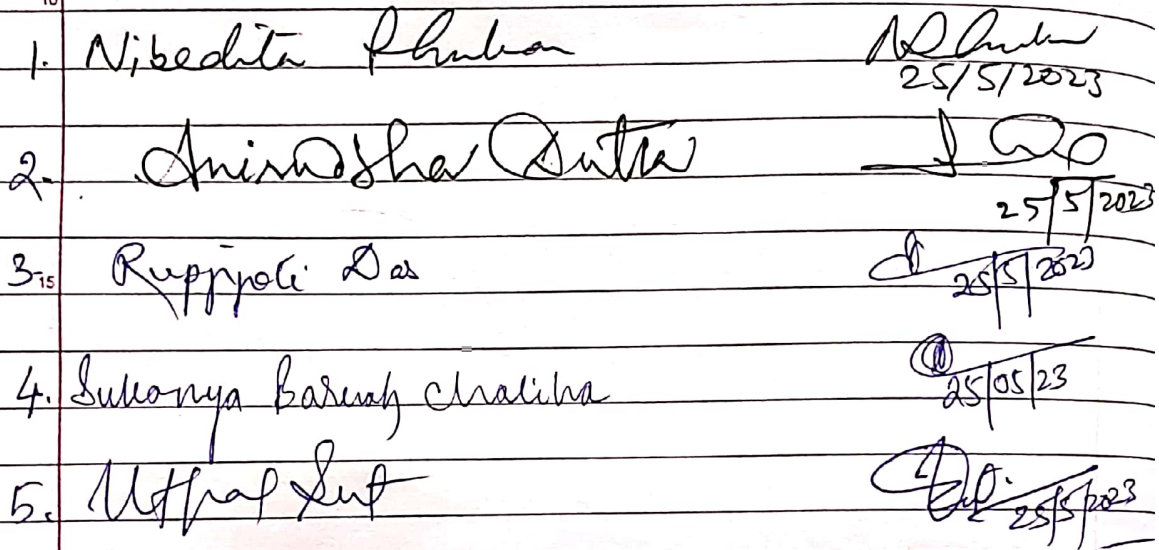 1. Nibedita Phukan
25/5/2023
2. Anuradha Dutta
25/5/2023
3. Rupjyoti Das
25/5/2023
4. Sukanya Baruah Chaliha
25/05/23
5. Utpal Sut
25/5/2023